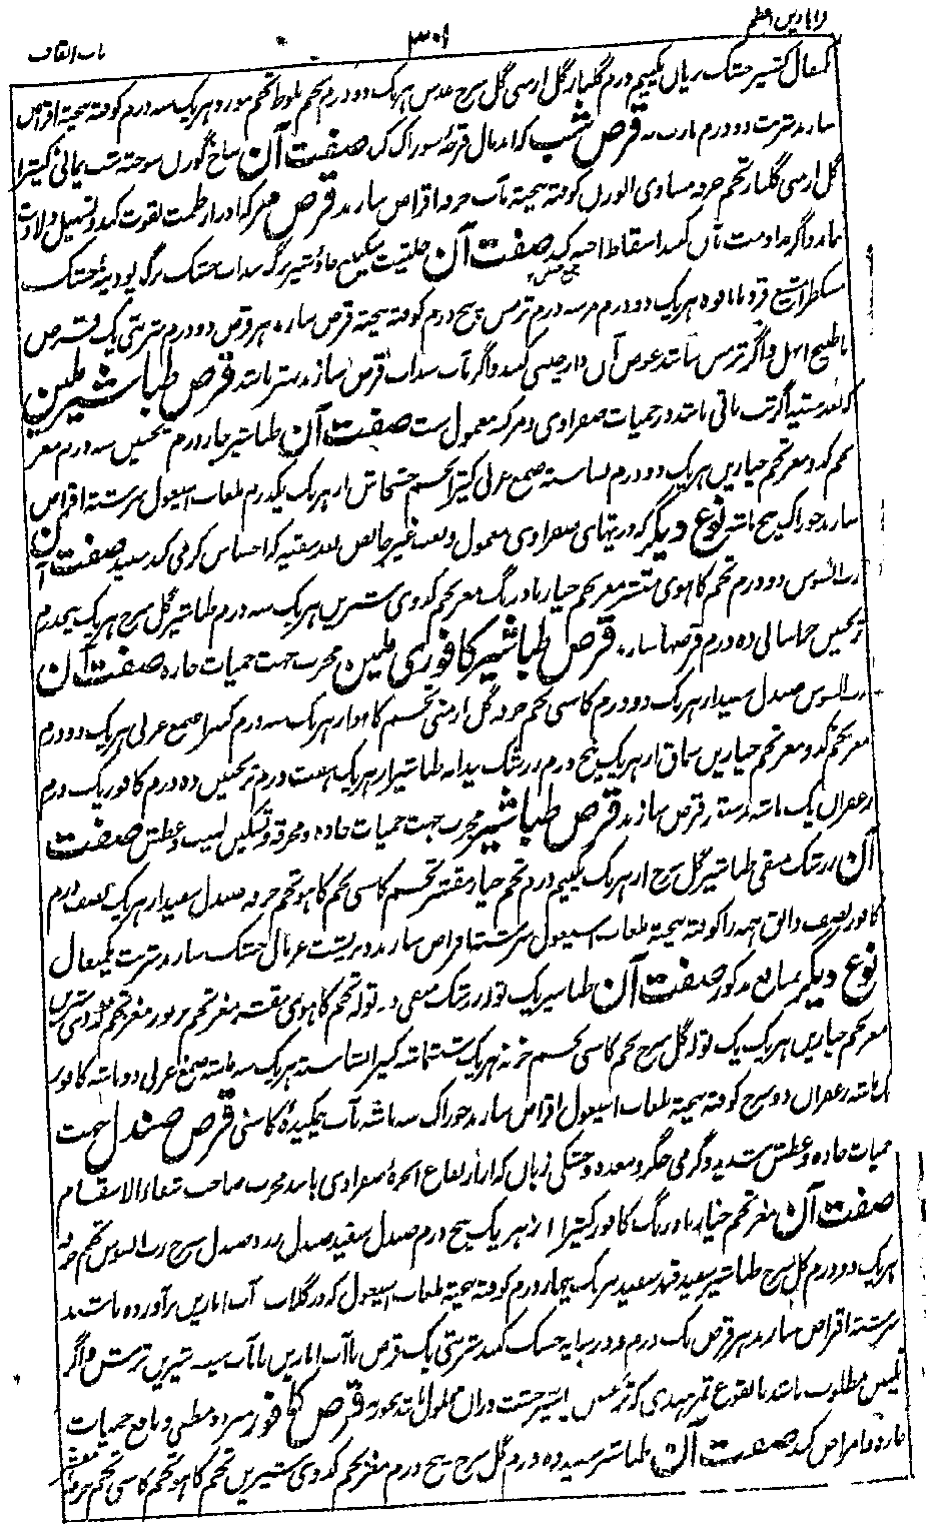 قرابادین اعظم
۳۰۱
باب القاف
گل سرخ عدس هریک دو درم تخم بلوط تخم مورد هریک سه درم کوفته بیخته اقراص
سازند شربت دو درم قرص شب صفت آن شاخ گوزن سوخته شب یمانی کتیرا
گل ارمنی گلنار تخم خرفه مساوی الوزن کوفته بیخته بآب خرفه اقراص سازند قرص مر که ادرار طمث بقوت کند و تسهیل ولادت
نماید و اگر مداومت بآن کنند اسقاط اجنه کند صفت آن حلتیت سکبینج جاوشیر برگ سداب خشک برگ پودینه خشک
هریک دو درم مر سه درم ترمس پنج درم کوفته بیخته قرص سازند هر قرص دو درم شربتی یک قرص
با طبیخ ابهل و اگر ترمس نباشد عوض آن دارچینی کنند و اگر بآب سداب قرص سازند بهتر باشد قرص طباشیر ملین
که بعد تنقیه اگر تب باقی باشد در حمیات صفراوی و مرکبه معمول ست صفت آن طباشیر چار درم ترنجبین سه درم مغز
تخم کدو مغز تخم خیارین هریک دو درم نشاسته صمغ عربی کتیرا تخم خشخاش از هریک یکدرم بلعاب اسپغول سرشته اقراص
سازند خوراک پنج ماشه نوع دیگر که در تپهای صفراوی معمول و بعد غیر خالص بعد تنقیه که احساس گرمی کند مفید صفت آن
رب السوس دو درم تخم کاهوی مقشر مغز تخم خیار بادرنگ مغز تخم کدوی شیرین هریک سه درم طباشیر گل سرخ هریک پنجدرم
ترنجبین خراسانی ده درم قرصها سازند قرص طباشیر کافوری ملین مجرب جهت حمیات حاده صفت آن
رب السوس صندل سپید از هریک دو درم کاسنی تخم خرفه گل ارمنی تخم کاهو از هریک سه درم کتیرا صمغ عربی هریک دو درم
مغز تخم کدو مغز تخم خیارین سماق از هریک پنج درم زرشک بیدانه طباشیر از هریک هفت درم ترنجبین ده درم کافور یک درم
زعفران یک ماشه بدستور قرص سازند قرص طباشیر مجرب جهت حمیات حاده و محرقه و تسکین لهیب و عطش صفت
آن زرشک منقی طباشیر گل سرخ از هریک یکنیم درم تخم خیار مقشر تخم کاسنی تخم کاهو تخم خرفه صندل سفید از هریک نصف درم
کافور نصف دانق همه را کوفته بیخته بلعاب اسپغول سرشته اقراص سازند و بر پشت غربال خشک سازند شربت یکمثقال
نوع دیگر بمنافع مذکور صفت آن طباشیر یک توله زرشک منقی دو توله تخم کاهوی مقشر مغز تخم تربوز مغز تخم کدوی شیرین
مغز تخم خیارین هریک یک توله گل سرخ تخم کاسنی تخم خرفه هریک شش ماشه کتیرا نشاسته هریک سه ماشه صمغ عربی دو ماشه کافور
یک ماشه زعفران دو سرخ کوفته بیخته بلعاب اسپغول اقراص سازند خوراک سه ماشه بآب چکیده کاسنی قرص صندل جهت
حمیات حاده و عطش شدید و گرمی جگر و معده و خشکی زبان که از ارتفاع ابخره صفراوی باشد مجرب صاحب شفاء الاسقام
صفت آن مغز تخم خیار بادرنگ کافور کتیرا از هریک پنج درم صندل سفید صندل زرد صندل سرخ رب السوس تخم خرفه
هریک دو درم گل سرخ طباشیر سفید قند سفید هریک چهار درم کوفته بیخته بلعاب اسپغول که در گلاب آب انارین برآورده باشند
سرشته اقراص سازند هر قرص یک درم و در سایه خشک کنند شربتی یک قرص با آب انارین یا آب سیب شیرین ترش و اگر
تلیین مطلوب باشد با نقوع تمر هندی که ترنجبین یا شیرخشت دران محلول باشد بخورند قرص کافور مبرد و مطفی و نافع حمیات
حاره و امراض کبد صفت آن طباشیر سپید ده درم گل سرخ پنج درم مغز تخم کدوی شیرین تخم کاهو تخم کاسنی تخم خرفه مقشر